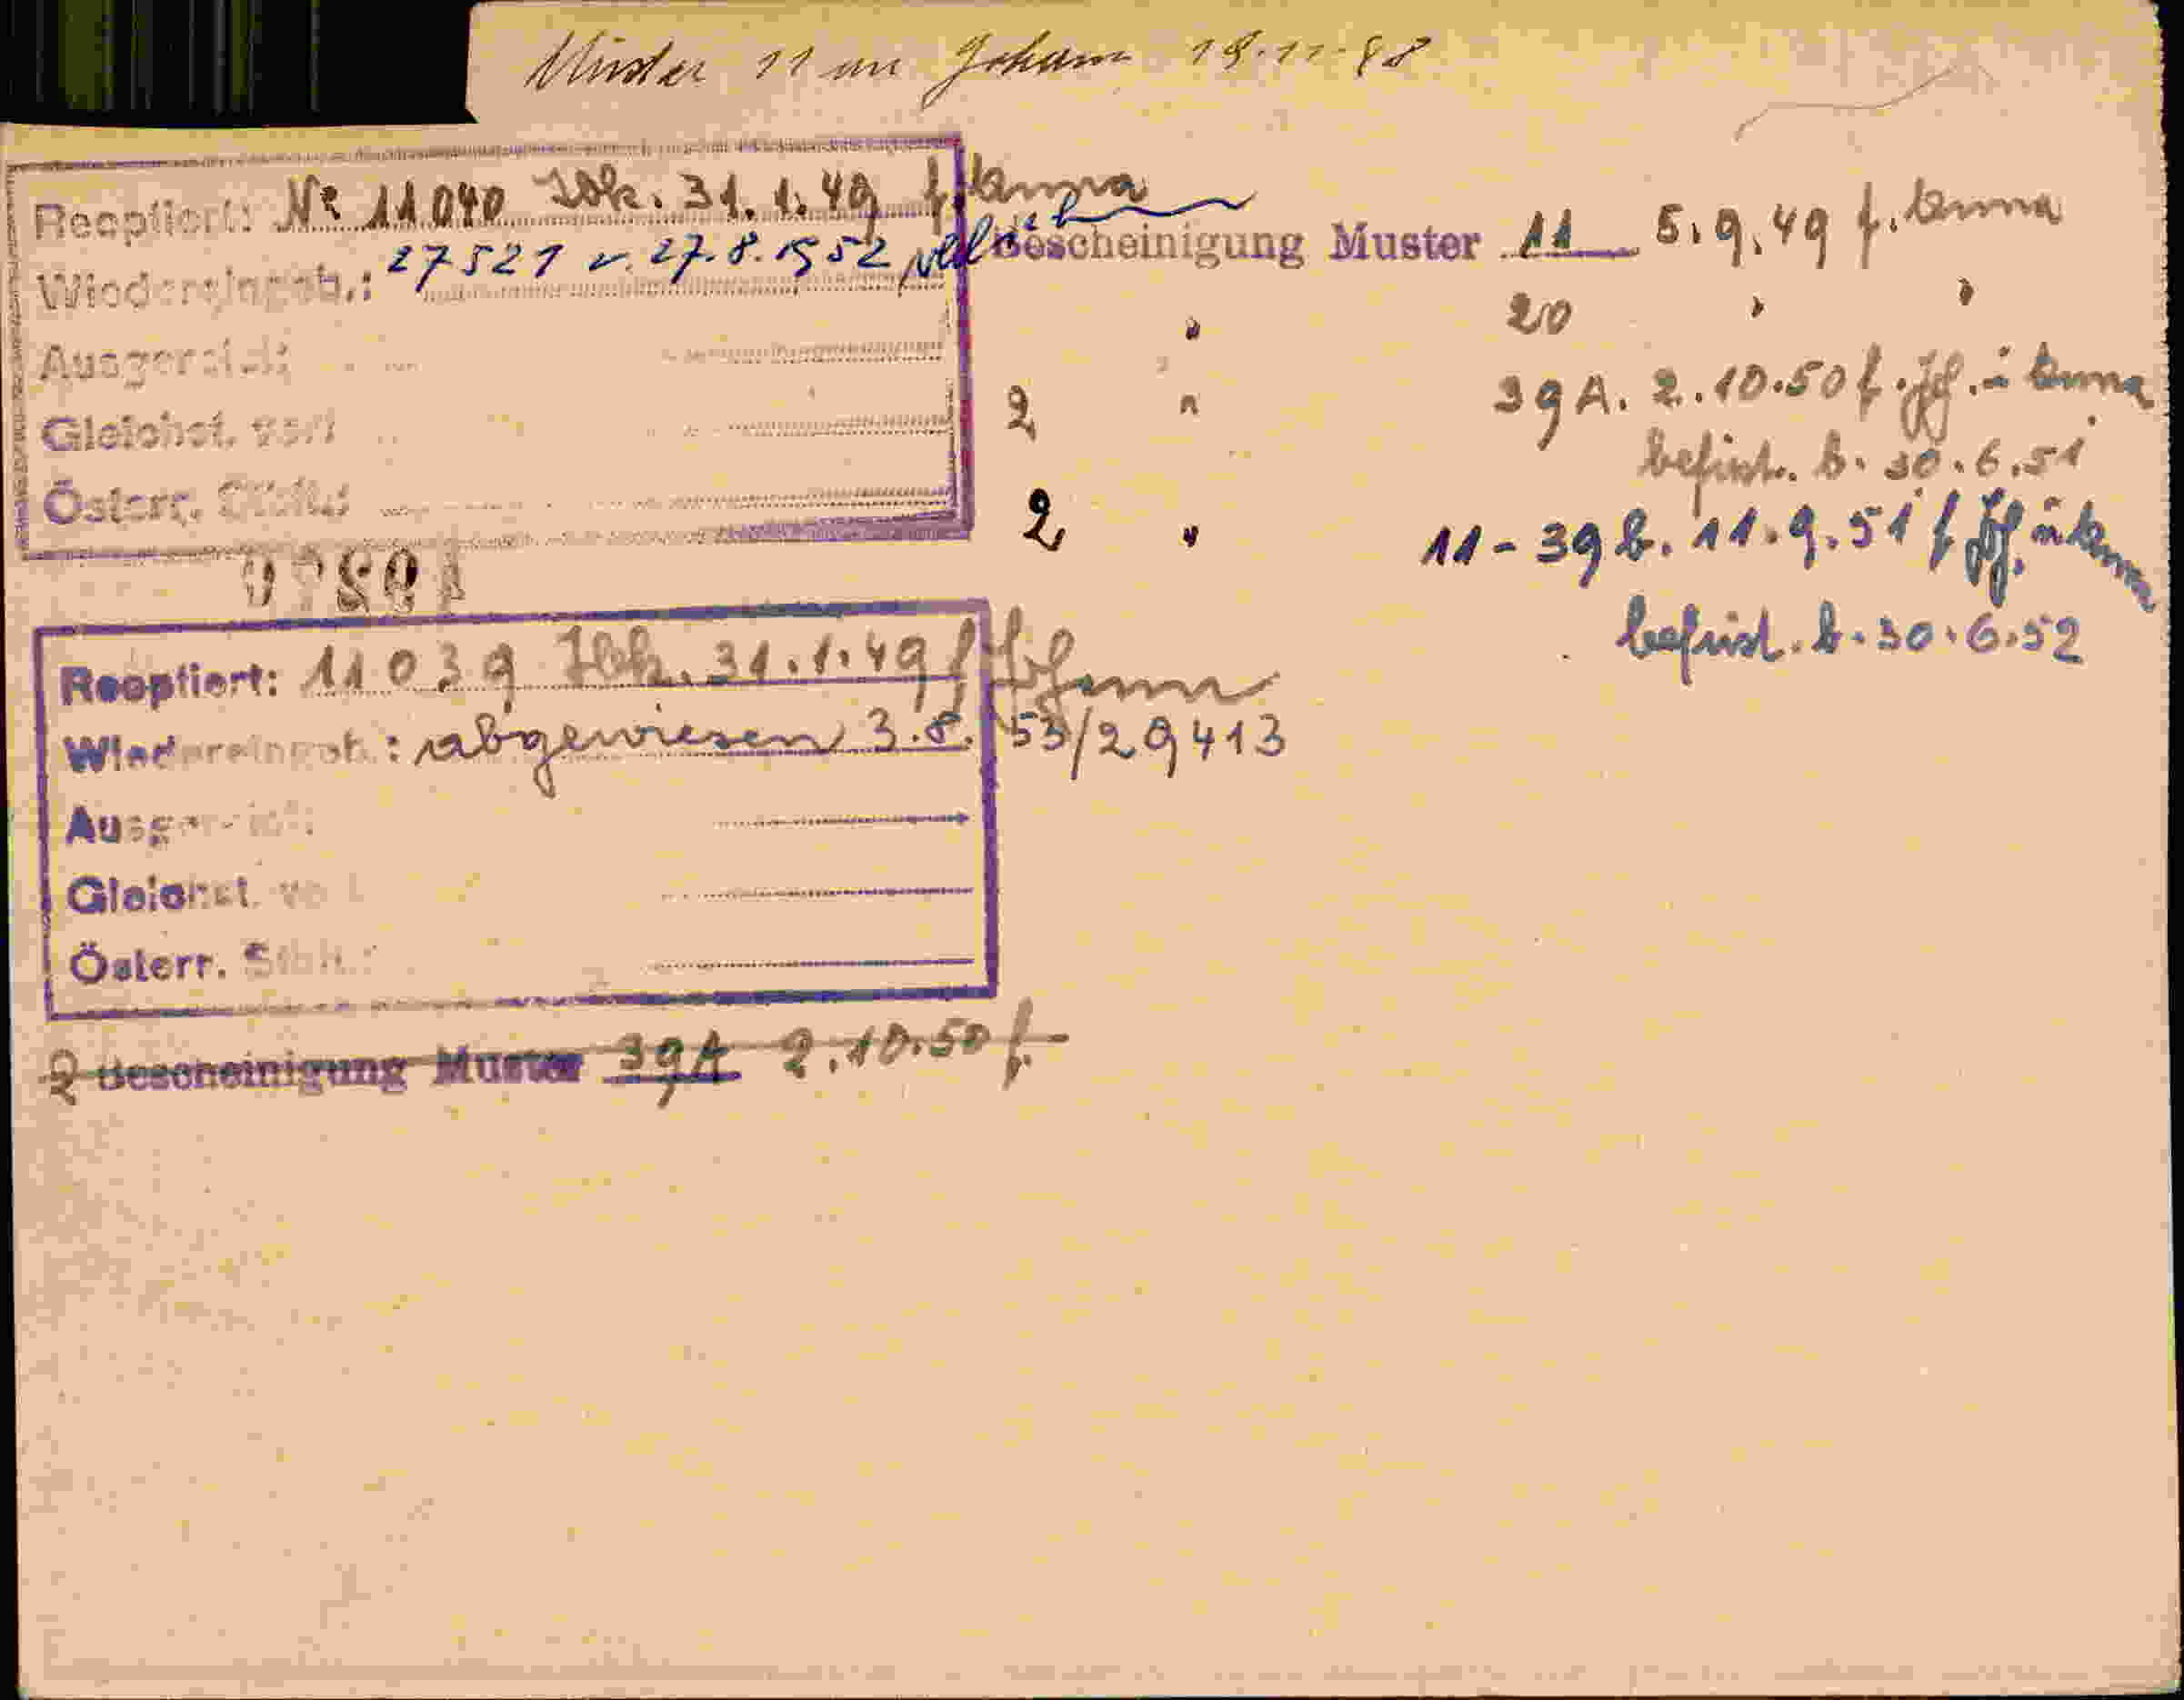 Muster 11 an Johann 18.11.48
Reoptiert: Nr 11040 Ibk. 31.1.49 f. Anna
Wiedereingeb.: 27521 v. 27.8.1952
Ausgereist:
Gleichst.
Österr.
Bescheinigung Muster 11 5.9.49 f. Anna
" 20 " "
2 " 39A. 2.10.50 f. Joh. u Anna
befrist. b. 30.6.51
2 " 11-39b. 11.9.51 f Joh. u Anna
befrist. b. 30.6.52
Reoptiert: 11039 Ibk. 31.1.49 f Johann
Wiedereingeb.: abgewiesen 3.8.53/29413
Ausgereist:
Gleichst.
Österr. Stbk.:
2 Bescheinigung Muster 39A 2.10.50 f.